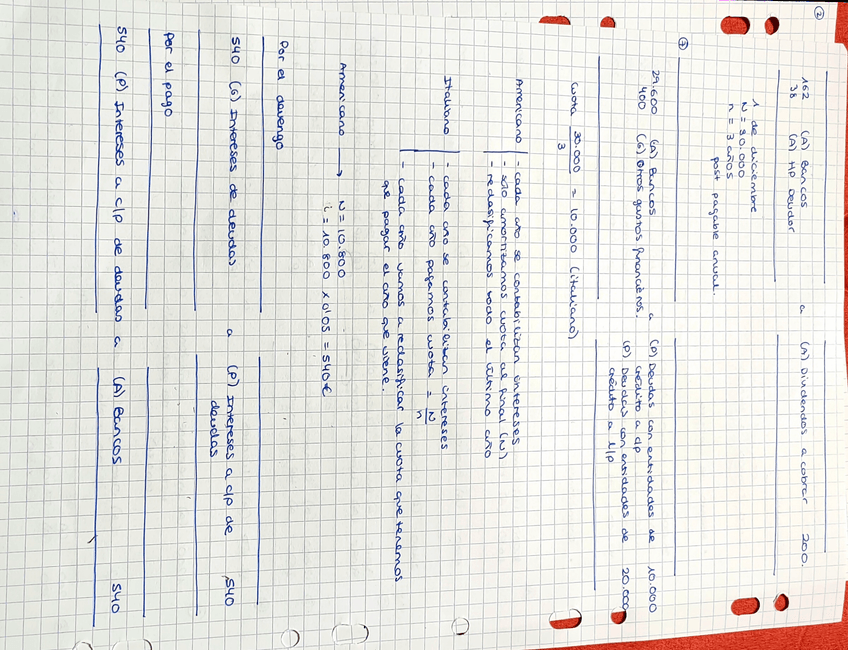 ②
162 (A) Bancos
38 (A) HP Deudor a (A) Dividendos a cobrar 200.
1 de diciembre
N = 30.000
n = 3 años
post pagable anual.
⑦
29.600 (A) Bancos
400 (G) Otros gastos financieros. a (P) Deudas con entidades de crédito a c/p 10.000
(P) Deudas con entidades de crédito a l/p 20.000
cuota 30.000 / 3 = 10.000 (italiano)
Americano - cada año se contabilizan intereses
- sólo amortizamos cuota al final (N)
- reclasificamos todo el último año
Italiano - cada año se contabilizan intereses
- cada año pagamos cuota = N / n
- cada año vamos a reclasificar la cuota que tenemos
que pagar el año que viene.
Americano → N = 10.800
i = 10.800 x 0'05 = 540€
Por el devengo
540 (G) Intereses de deudas a (P) Intereses a c/p de deudas 540
Por el pago
540 (P) Intereses a c/p de deudas a (A) Bancos 540